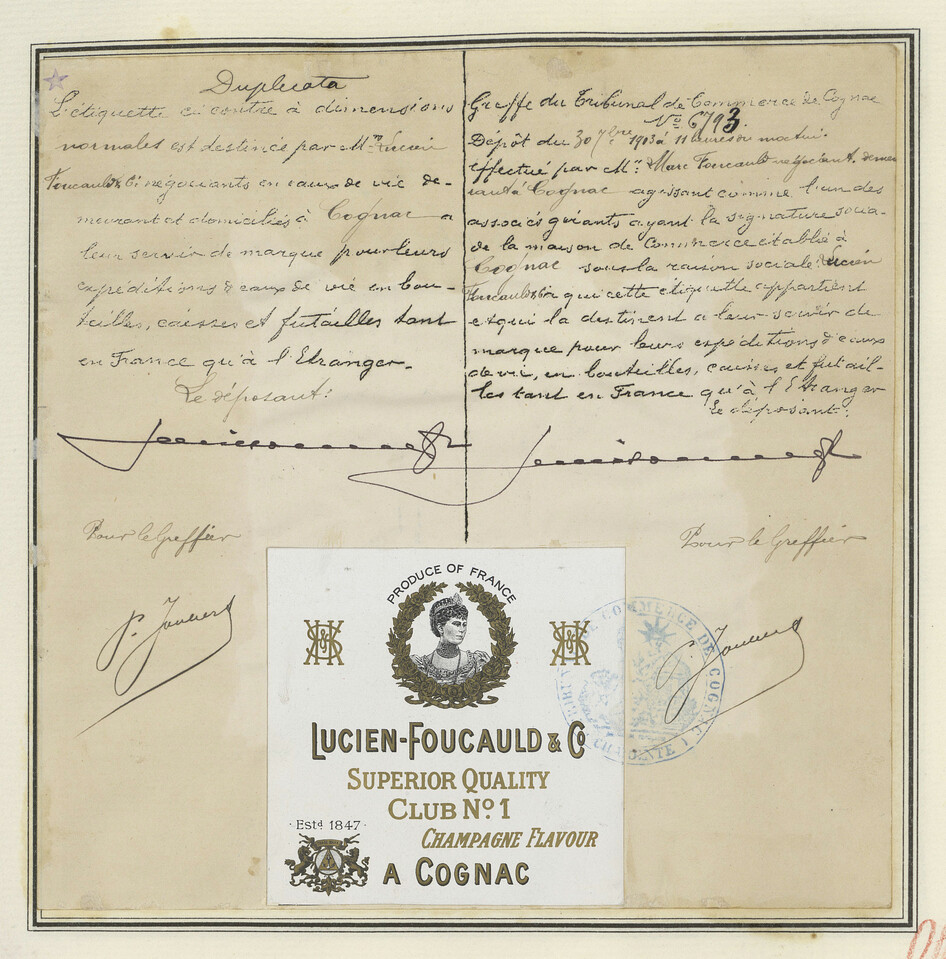 Duplicata
L'étiquette ci contre à dimensions
normales est destinée par Mm Lucien
Foucauld & Ci négociants en eaux de vie de-
meurant et domiciliés à Cognac a
leur servir de marque pour leurs
expéditions d'eaux de vie en bou-
teilles, caisses et futailles tant
en France qu'à l'Etranger.
Le déposant:
Pour le Greffier
Greffe du Tribunal de Commerce de Cognac
No 6793
Dépôt du 30 7bre 1913 à 11 heures du matin.
effectué par Mr. Marc Foucauld négociant demeu
rant à Cognac agissant comme l'un des
associés gérants ayant la signature socia-
de la maison de Commerce établie à
Cognac sous la raison sociale: Lucien
Foucauld & Ci a qui cette etiquette appartient
et qui la destinent a leur servir de
marque pour leurs expéditions d'eaux
de vie, en bouteilles, caisses et futail-
les tant en France qu'à l'Etranger
Le déposant:
Pour le Greffier
PRODUCE OF FRANCE
LUCIEN-FOUCAULD & Co
SUPERIOR QUALITY
CLUB No 1
Estd 1847
CHAMPAGNE FLAVOUR
A COGNAC
COMMERCE DE COGNAC